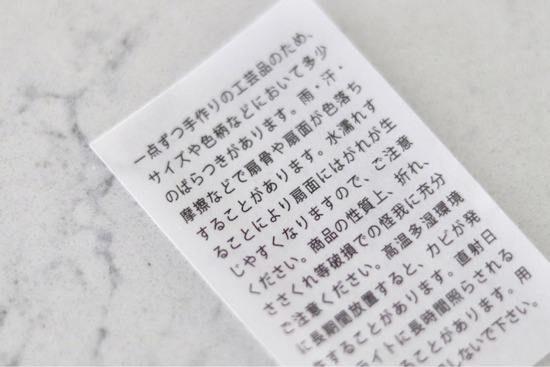 一点ずつ手作りの工芸品のため、
サイズや色柄などにおいて多少
のばらつきがあります。雨・汗・
摩擦などで扇骨や扇面が色落ち
することがあります。水濡れす
ることにより扇面にはがれが生
じやすくなりますので、ご注意
ください。商品の性質上、折れ、
ささくれ等破損での怪我に充分
ご注意ください。高温多湿環境
に長期間放置すると、カビが発
することがあります。直射日
ライトに長時間照らされる
ることがあります。用
しないで下さい。